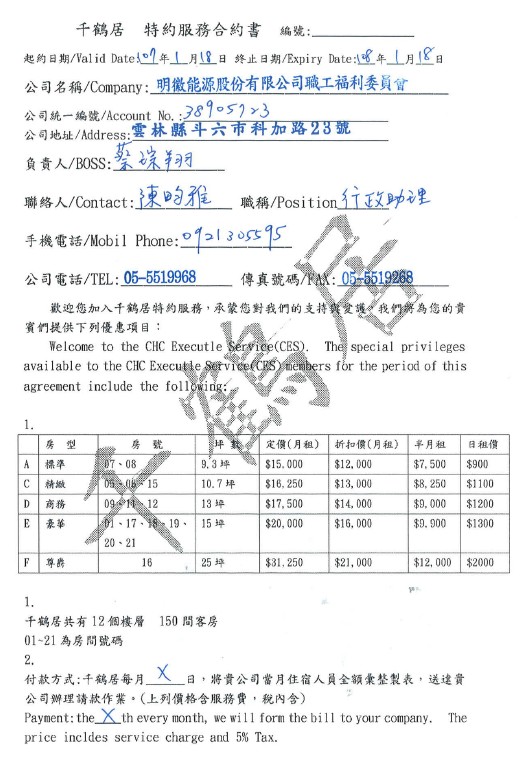 千鶴居　特約服務合約書　編號:
起約日期/Valid Date:107年1月18日 終止日期/Expiry Date:108年1月18日
公司名稱/Company:明徽能源股份有限公司職工福利委員會
公司統一編號/Account No.:38905723
公司地址/Address:雲林縣斗六市科加路23號
負責人/BOSS:蔡琮翔
聯絡人/Contact:陳昀雅 職稱/Position 行政助理
手機電話/Mobil Phone:0921305595
公司電話/TEL:05-5519968 傳真號碼/FAX:05-5519268
歡迎您加入千鶴居特約服務，承蒙您對我們的支持與愛護。我們將為您的貴
賓們提供下列優惠項目：
Welcome to the CHC Executle Service(CES). The special privileges
available to the CHC Executle Service(CES) members for the period of this
agreement include the following:
1.
房 型 房 號 坪 數 定價(月租) 折扣價(月租) 半月租 日租價
A 標準 07、08 9.3 坪 $15,000 $12,000 $7,500 $900
C 精緻 05、06、15 10.7 坪 $16,250 $13,000 $8,250 $1100
D 商務 09、11、12 13 坪 $17,500 $14,000 $9,000 $1200
E 豪華 01、17、18、19、 15 坪 $20,000 $16,000 $9,900 $1300
20、21
F 尊爵 16 25 坪 $31,250 $21,000 $12,000 $2000
1.
千鶴居共有 12 個樓層　150 間客房
01~21 為房間號碼
2.
付款方式:千鶴居每月 X 日，將貴公司當月住宿人員金額彙整製表，送達貴
公司辦理請款作業。(上列價格含服務費，稅內含)
Payment:the X th every month, we will form the bill to your company. The
price incldes service charge and 5% Tax.
千鶴居